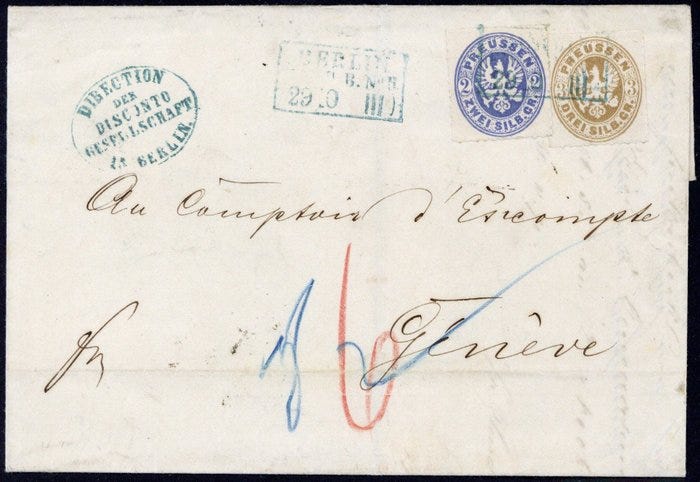 DIRECTION
DER
DISCONTO
GESELLSCHAFT
IN BERLIN.
BERLIN
P. B. No 8
29 10 III
PREUSSEN
2 29 2
ZWEI SILB. GR.
PREUSSEN
3 III 3
DREI SILB. GR.
Au Comptoir d'Escompte
Genève
6